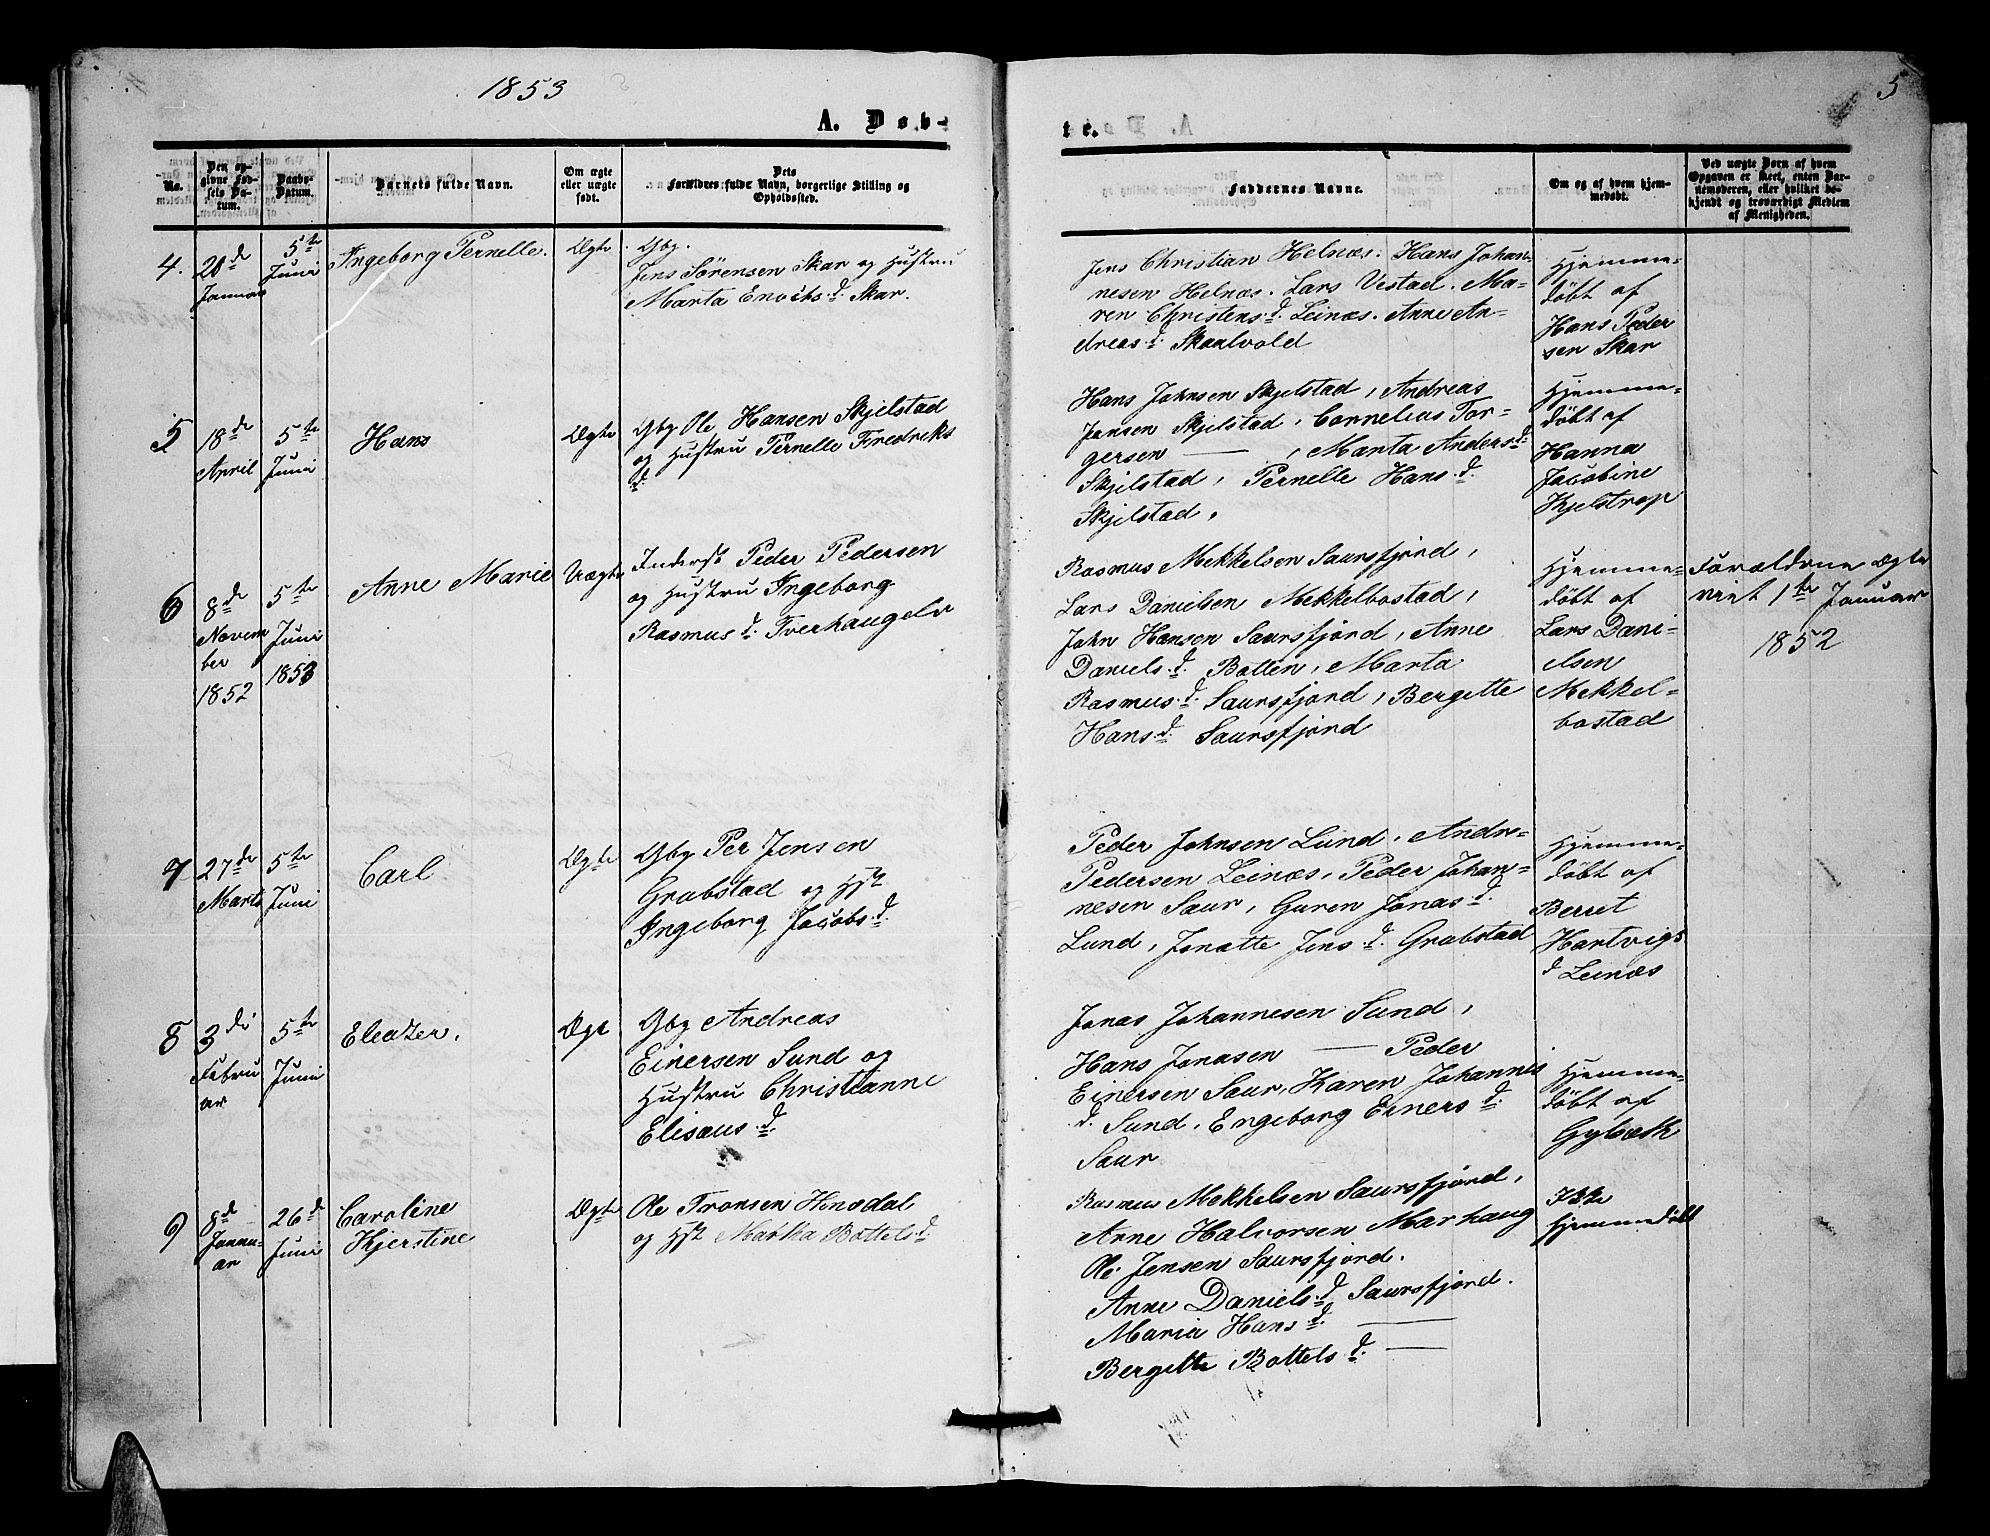 1853
5
A. Døb-
te.
No.
Den op-
givne Fød-
sels Da-
tum.
Daabs-
Datum.
Barnets fulde Navn.
Om ægte
eller uægte
født.
Dets
Forældres fulde Navn, borgerlige Stilling og
Opholdssted.
Faddernes Navne.
Om og af hvem hjem-
medøbt.
Ved uægte Born af hvem
Opgaven er skeet, enten Bar-
nemoderen, eller hvilket be-
kjendt og troværdigt Medlem
af Menigheden.
4.
20de
Januar
5te
Juni
Ingeborg Pernelle.
Ægte
Gbg.
Jens Sörensen Skar og Hustru
Marta Enochs.d. Skar.
Jens Christian Helnæs. Hans Johan-
nesen Helnæs. Lars Vestad. Ma-
ren Christens.d. Leinæs. Anne An-
dreas.d. Skaalvold
Hjemme-
döbt af
Hans Peder
sen Skar
5
18de
April
5te
Juni
Hans
Ægte
Gbg Ole Hansen Skjelstad
og Hustru Pernelle Fredriks
d.
Hans Johnsen Skjelstad, Andreas
Jansen Skjelstad, Cornelius Tor-
gersen — , Marta Anders.d.
Skjelstad, Pernelle Hans.d.
Skjelstad,
Hjemme-
döbt af
Hanna
Jacobine
Kjelstrop
6
8de
Novem
ber
1852
5te
Juni
1853
Anne Marie
Uægte
Inderst Peder Pedersen
og Hustru Ingeborg
Rasmus d. Tverhaugelv
Rasmus Mekkelsen Saursfjord,
Lars Danielsen Mekkelbostad,
John Hansen Saursfjord, Anne
Daniels.d. Botten, Marta
Rasmus.d. Saursfjord, Bergitte
Hans.d. Saursfjord
Hjemme-
döbt af
Lars Dani-
elsen
Mekkel-
bostad
Forældrene ægte
viet 1te Januar
1852
7
27de
Marts
5te
Juni
Carl
Ægte
Gbg Per Jensen
Grabstad og Hst
Ingeborg Jacobs.d.
Peder Johnsen Lund, Andr-
Pedersen Leinæs, Peder Johan-
nesen Saur, Guren Jonas.d.
Lund, Jonette Jens.d. Grabstad
Hjemme-
döbt af
Berret
Hartvigs
d Leinæs
8
3di
Febru
ar
5te
Juni
Eleazer.
Ægt
Gbg Andreas
Einersen Sund og
Hustru Christianne
Elisæus.d.
Jonas Johannesen Sund,
Hans Jonasen — Peder
Einersen Saur, Karen Johannes
d. Sund, Engeborg Einers d.
Saur
Hjemme-
döbt af
Gylseth
9
8de
Janu-
ar
26de
Juni
Caroline
Kjerstine
Ægte
Ole Tronsen Hnsdal
og Hst Martha Bottels.d.
Rasmus Mekkelsen Saursfjord,
Anne Halvorsen Marhaug
Ole Jensen Saursfjord.
Anne Daniels.d. Saursfjord.
Maria Hans d. —
Bergitte Bottels d. —
Ikke
hjemmedöbt